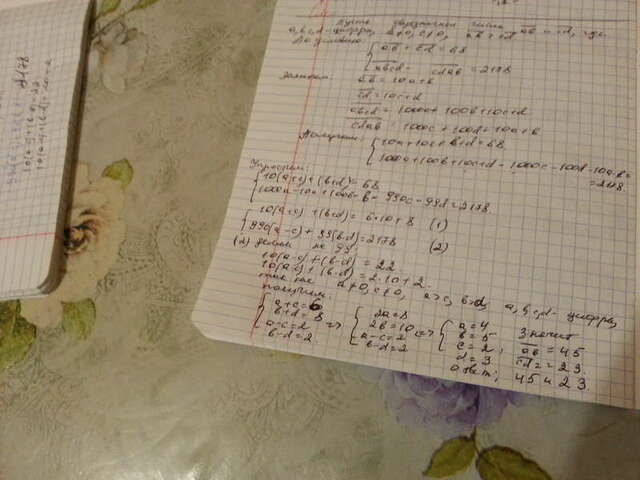 Пусть двузначные числа ab и cd, где
a, b, c, d - цифры, a≠0, c≠0, ab > cd
По условию:
ab + cd = 68
abcd - cdab = 2178
Запишем:
ab = 10a + b
cd = 10c + d
abcd = 1000a + 100b + 10c + d
cdab = 1000c + 100d + 10a + b
Получим:
10a + 10c + b + d = 68
1000a + 100b + 10c + d - 1000c - 100d - 10a - b =
= 2178
Упростим:
10(a+c) + (b+d) = 68
1000a - 10a + 100b - b - 990c - 99d = 2178.
10(a+c) + (b+d) = 6·10 + 8 (1)
990(a-c) + 99(b-d) = 2178 (2)
(2) делим на 99
10(a-c) + (b-d) = 22
10(a-c) + (b-d) = 2·10 + 2.
так как a≠0, c≠0, a>c, b>d, a, b, c, d - цифры,
получим
a+c=6
b+d=8
a-c=2
b-d=2
=>
2a=8
2b=10
a-c=2
b-d=2
=>
a=4
b=5
c=2
d=3
Значит
ab = 45
cd = 23.
Ответ: 45 и 23.